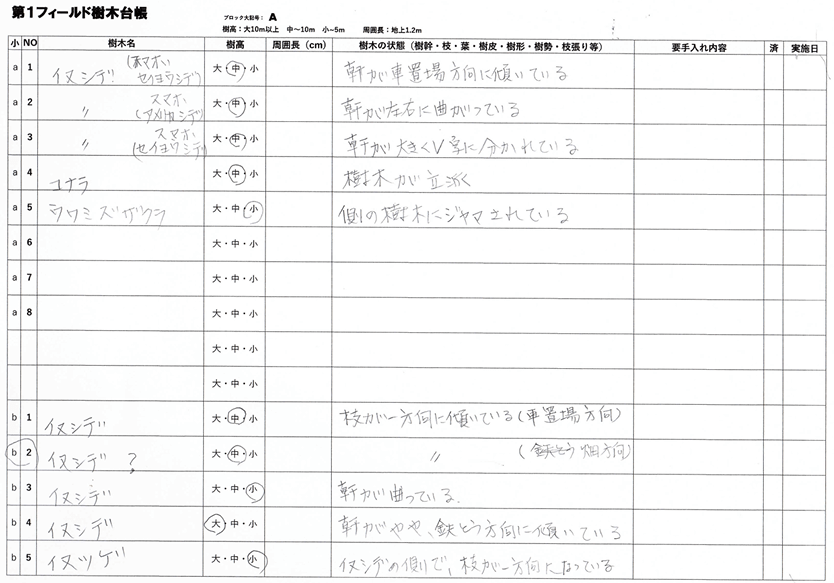 第1フィールド樹木台帳
ブロック大記号： A
樹高：大10m以上 中～10m 小~5m 周囲長：地上1.2m
小 NO 樹木名 樹高 周囲長（cm） 樹木の状態（樹幹・枝・葉・樹皮・樹形・樹勢・枝張り等） 要手入れ内容 済 実施日
a 1 イヌシデ (スマホ セイヨウシデ) 大・中・小 軒が車置場方向に傾いている
a 2 〃 スマホ (アメリカシデ) 大・中・小 軒が左右に曲がっている
a 3 〃 スマホ (セイヨウシデ) 大・中・小 軒が大きくV字に分かれている
a 4 コナラ 大・中・小 樹木が立派
a 5 ウワミズザクラ 大・中・小 側の樹木にジャマされている
a 6 大・中・小
a 7 大・中・小
a 8 大・中・小
大・中・小
大・中・小
b 1 イヌシデ 大・中・小 枝が一方向に傾いている(車置場方向)
b 2 イヌシデ ? 大・中・小 〃 (鉄とう 畑方向)
b 3 イヌシデ 大・中・小 軒が曲っている.
b 4 イヌシデ 大・中・小 軒がやや、鉄とう方向に傾いている
b 5 イヌツゲ 大・中・小 イヌシデの側りで、枝が一方向になっている